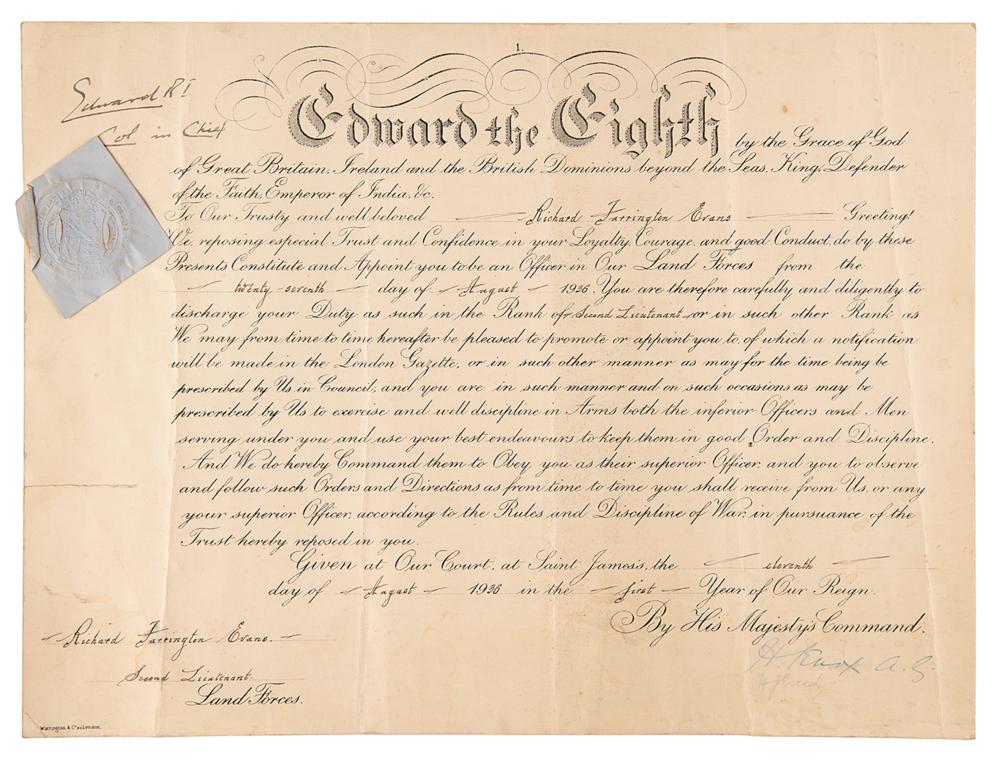 1.
Edward R I
Col in Chief
Edward the Eighth by the Grace of God
of Great Britain, Ireland and the British Dominions beyond the Seas, King, Defender
of the Faith, Emperor of India, &c.
To Our Trusty and well beloved Richard Farrington Evans Greeting!
We, reposing especial Trust and Confidence in your Loyalty, Courage, and good Conduct, do by these
Presents Constitute and Appoint you to be an Officer in Our Land Forces from the
twenty-seventh day of August 1936. You are therefore carefully and diligently to
discharge your Duty as such in the Rank of Second Lieutenant or in such other Rank as
We may from time to time hereafter be pleased to promote or appoint you to, of which a notification
will be made in the London Gazette, or in such other manner as may for the time being be
prescribed by Us in Council, and you are in such manner and on such occasions as may be
prescribed by Us to exercise and well discipline in Arms both the inferior Officers and Men
serving under you and use your best endeavours to keep them in good Order and Discipline.
And We do hereby Command them to Obey you as their superior Officer, and you to observe
and follow such Orders and Directions as from time to time you shall receive from Us, or any
your superior Officer, according to the Rules and Discipline of War, in pursuance of the
Trust hereby reposed in you.
Given at Our Court, at Saint James's, the eleventh
day of August 1936 in the first Year of Our Reign.
By His Majesty's Command.
Richard Farrington Evans.
Second Lieutenant
Land Forces.
H Knox A. G.
Warrington & Co. London.